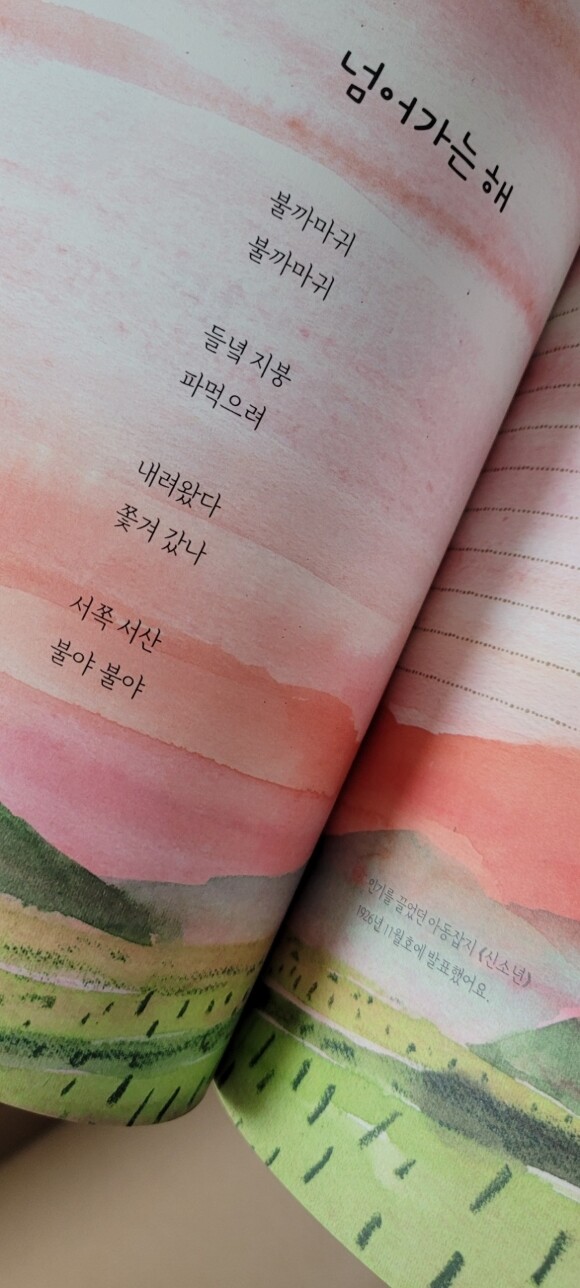 넘어가는 해
불까마귀
불까마귀
들녘 지붕
파먹으려
내려왔다
쫓겨 갔나
서쪽 서산
불야 불야
인기를 끌었던 아동잡지 《신소년》
1926년 11월호에 발표했어요.